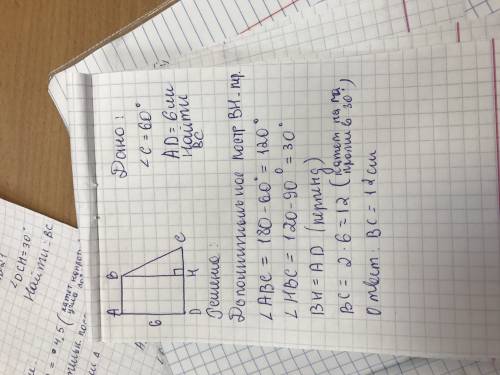 Дано:
∠C = 60°
AD = 6 см
Найти
BC
A B C
6 D H
Решение:
Дополнительное постр BH - пер.
∠ABC = 180 - 60° = 120°
∠HBC = 120 - 90° = 30°
BH = AD (перпенд)
BC = 2 · 6 = 12 (катет
против 30°)
Ответ: BC = 12 см
∠DCH = 30°
Найти: BC
= 4,5 (катет